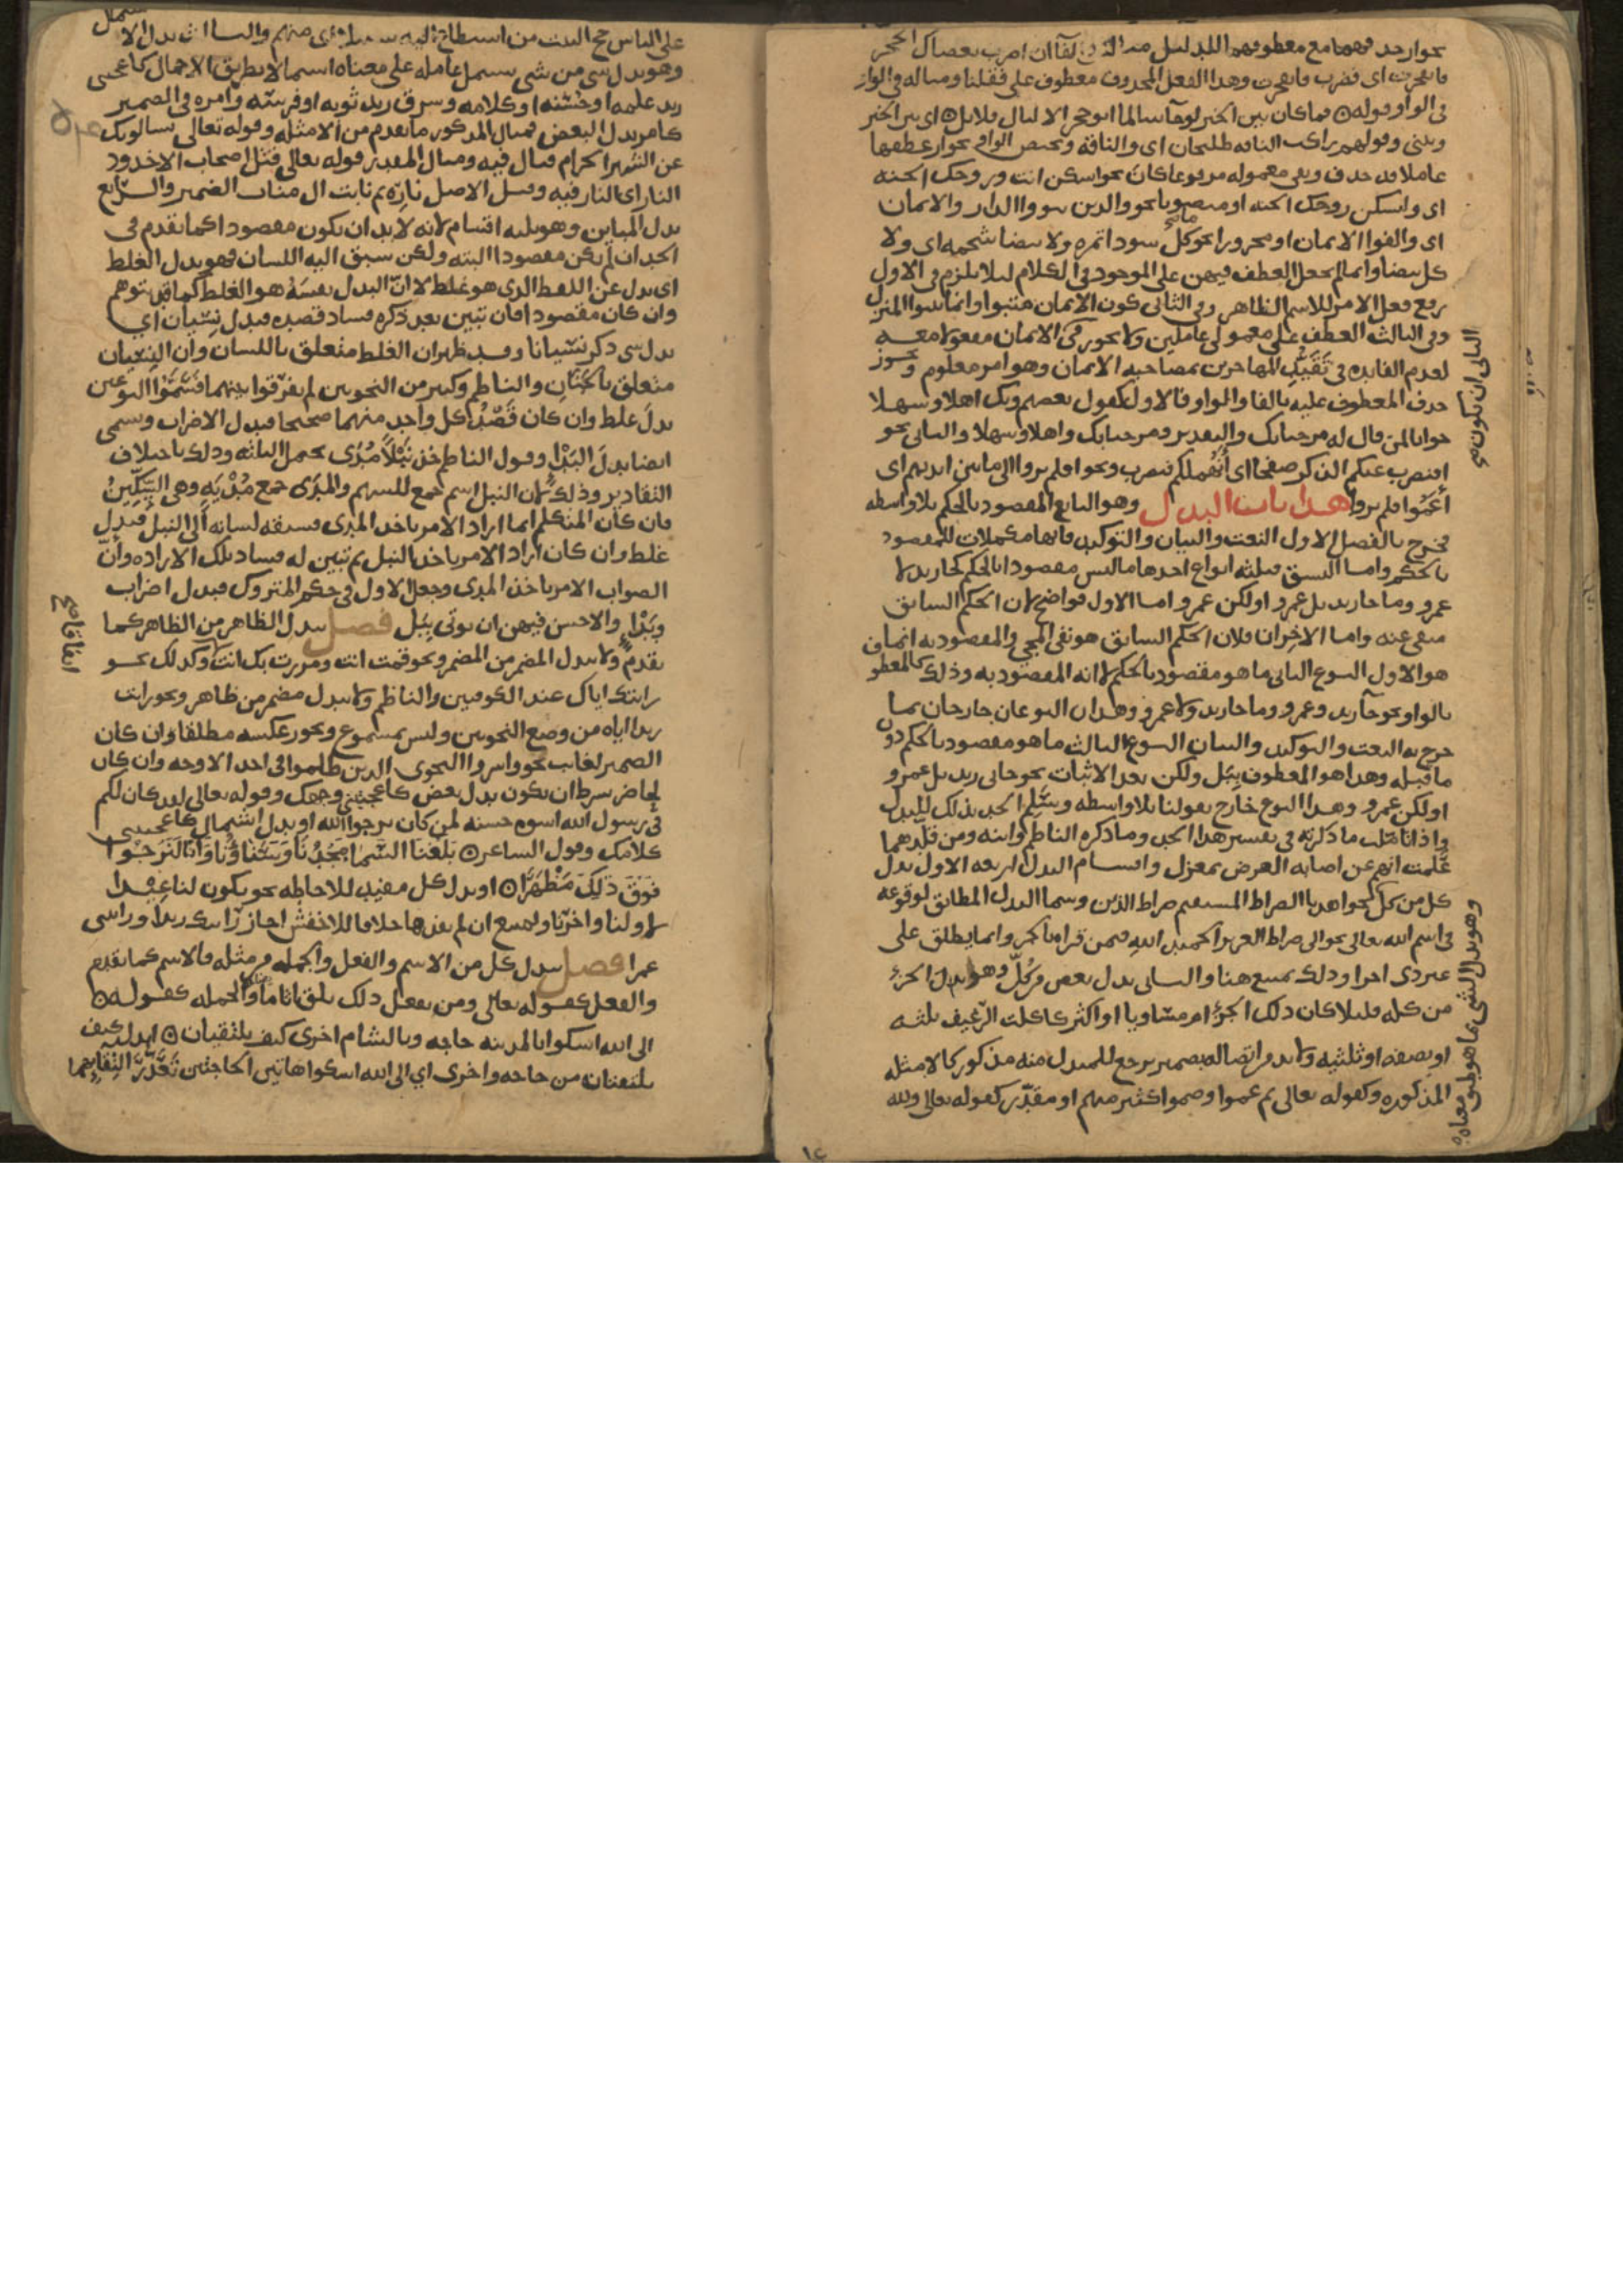 بجوار حذفهما مع معطوفهما للدليل مثاله في الفآ ان اضرب بعصاك الحجر
فانفجرت اى فضرب فانفجرت وهذا الفعل المحذوف معطوف على فقلنا ومثاله في الواو
في الواو قوله فما كان بين الخير لو جآ سالما ابو حجر الا ليال قلائل اى بين الخير
وبينى وقولهم راكب الناقه طليحان اى والناقه وتختص الواو بجوار عطفها
عاملا قد حذف وبقى معموله مرفوعا كان نحو اسكن انت وزوجك الجنه
اى وليسكن زوجك الجنه او منصوبا نحو والذين تبووا الدار والايمان
اى والفوا الايمان او مجرورا نحو ما كل سودا تمره ولا بيضا شحمه اى ولا
كل بيضا وانما لم يجعل العطف فيهن على الموجود في الكلام ليلا يلزم في الاول
رفع فعل الامر للاسم الظاهر وفى الثانى كون الايمان متبوا وانما تبووا المنزل
وفى الثالث العطف على معمولى عاملين ولا يجوز في الايمان مفعولا معه
لعدم الفايده في تقييد المهاجرين بمصاحبة الايمان وهو امر معلوم ويجوز
حذف المعطوف عليه بالفا والواو فالاول كقول بعضهم وبك اهلا وسهلا
جوابا لمن قال له مرحبا بك والتقدير ومرحبا بك واهلا وسهلا والثانى نحو
افنضرب عنكم الذكر صفحا اى انهملكم فنضرب ونحو افلم يروا الى ما بين ايديهم اى
اعموا فلم يروا هذا باب البدل وهو التابع المقصود بالحكم بلا واسطه
فخرج بالفصل الاول النعت والبيان والتوكيد فانها مكملات للمقصود
بالحكم واما النسق فثلثه انواع احدها ما ليس مقصودا بالحكم كجا زيد لا
عمرو وما جا زيد بل عمرو او لكن عمرو اما الاول فواضح لان الحكم السابق
منفى عنه واما الاخران فلان الحكم السابق هو نفى المجى والمقصود به انما
هو الاول النوع الثانى ما هو مقصود بالحكم لا انه المقصود به وذلك كالمعطوف
بالواو نحو جآ زيد وعمرو وما جا زيد ولا عمرو وهذان النوعان خارجان بما
خرج به النعت والتوكيد والبيان النوع الثالث ما هو مقصود بالحكم دون
ما قبله وهذا هو المعطوف ببل ولكن بعد الاثبات نحو جانى زيد بل عمرو
او لكن عمرو وهذا النوع خارج بقولنا بلا واسطه وسلم الحد بذلك للبدل
واذا تاملت ما ذكرته في تفسير هذا الحد وما ذكره الناظم وابنه ومن قلدهما
علمت انهم عن اصابة الغرض بمعزل واقسام البدل اربعه الاول بدل
كل من كل نحو اهدنا الصراط المستقيم صراط الذين وسما البدل المطابق لوقوعه
في اسم الله تعالى نحو الى صراط العزيز الحميد الله فيمن قرا بالجر وانما يطلق على
كل ذى اجزا وذلك ممتنع هنا والثانى بدل بعض من كل وهو بدل الجزء
من كله قليلا كان ذلك الجزء ام مساويا او اكثر كاكلت الرغيف ثلثه
او نصفه او ثلثيه ولا بد من اتصاله بضمير يرجع للمبدل منه مذكور كالامثله
المذكوره وكقوله تعالى ثم عموا وصموا كثير منهم او مقدر كقوله تعالى ولله
وهو بدل الشى مما هو طبق معناه
على الناس حج البيت من استطاع اليه سبيلا اى منهم والثالث بدل الاشتمال
وهو بدل شى من شى يشتمل عامله على معناه اشتمالا بطريق الاجمال كاعجبنى
زيد علمه او حسنه او كلامه وسرق زيد ثوبه او فرسه وامره في الضمير
كامر بدل البعض فمثال المذكور ما تقدم من الامثله وقوله تعالى يسالونك
عن الشهر الحرام قتال فيه ومثال المقدر قوله تعالى قتل اصحاب الاخدود
النار اى النار فيه وقيل الاصل ناره ثم نابت ال مناب الضمير والرابع
بدل المباين وهو ثلثه اقسام لانه لا بد ان يكون مقصودا كما تقدم في
الحد ان لم يكن مقصودا البته ولكن سبق اليه اللسان فهو بدل الغلط
اى بدل عن اللفظ الذى هو غلط لا ان البدل نفسه هو الغلط كما قد يتوهم
وان كان مقصودا فان تبين بعد ذكره فساد قصده فبدل نسيان اي
بدل شى ذكر نسيانا وقد ظهر ان الغلط متعلق باللسان وان النسيان
متعلق بالجنان والناظم وكثير من النحويين لم يفرقوا بينهما فسموا النوعين
بدل غلط وان كان قصد كل واحد منهما صحيحا فبدل الاضراب ويسمى
ايضا بدل البدا وقول الناظم خذ نبلا مدى يحتمل الثلثه وذلك باختلاف
التقادير وذلك لان النبل اسم جمع للسهم والمدى جمع مديه وهى السكين
فان كان المتكلم انما اراد الامر باخذ المدى فسبقه لسانه الى النبل فبدل
غلط وان كان اراد الامر باخذ النبل ثم تبين له فساد تلك الاراده وان
الصواب الامر باخذ المدى وجعل الاول في حكم المتروك فبدل اضراب
وبدا والاحسن فيهن ان يوتى ببل فصل يبدل الظاهر من الظاهر كما
تقدم ولا يبدل المضمر من المضمر ونحو قمت انت ومررت بك انت وكذلك نحو
رايتك اياك عند الكوفيين والناظم ولا يبدل مضمر من ظاهر ونحو رايت
زيدا اياه من وضع النحويين وليس بمسموع ويجوز عكسه مطلقا ان كان
الضمير لغايب نحو واسروا النجوى الذين ظلموا في احد الاوجه وان كان
لحاضر بشرط ان يكون بدل بعض كاعجبتنى وجهك وقوله تعالى لقد كان لكم
في رسول الله اسوه حسنه لمن كان يرجوا الله او بدل اشتمال كاعجبتنى
كلامك وقول الشاعر بلغنا السما مجدنا وسناؤنا وانا لنرجوا
فوق ذلك مظهرا او بدل كل مفيد للاحاطه نحو يكون لنا عيدا
لاولنا واخرنا ويمتنع ان لم يفدها خلافا للاخفش اجاز رايتك زيدا ورايتنى
عمرا فصل يبدل كل من الاسم والفعل والجمله من مثله فالاسم كما تقدم
والفعل كقوله تعالى ومن يفعل ذلك يلق اثاما والجمله كقوله
الى الله اشكوا بالمدينه حاجه وبالشام اخرى كيف يلتقيان ابدل كيف
يلتقيان من حاجه واخرى اي الى الله اشكوا هاتين الحاجتين تعذر التقايهما